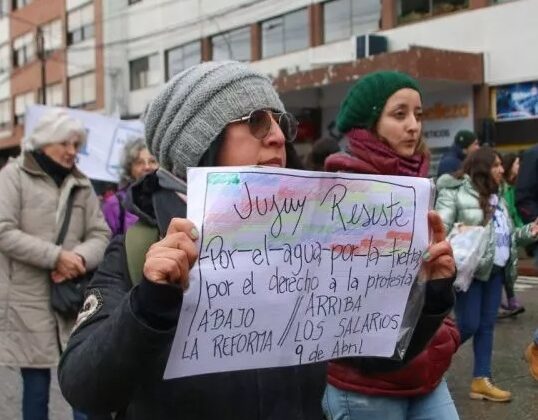 Jujuy Resiste
Por-el-agua-por-la-tierra
por el derecho a la protesta
/ABAJO // ARRIBA
LA REFORMA // LOS SALARIOS
9 de Abril